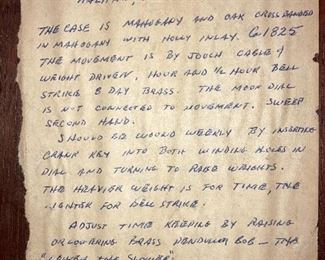 THE CASE IS MAHOGANY AND OAK CROSS BANDED
IN MAHOGANY WITH HOLLY INLAY. C-1825
THE MOVEMENT IS BY CABLE &
WEIGHT DRIVEN, HOUR AND ½ HOUR BELL
STRIKE 8 DAY BRASS. THE MOON DIAL
IS NOT CONNECTED TO MOVEMENT. SWEEP
SECOND HAND.
SHOULD BE WOUND WEEKLY BY INSERTING
CRANK KEY INTO BOTH WINDING HOLES IN
DIAL AND TURNING TO RAISE WEIGHTS.
THE HEAVIER WEIGHT IS FOR TIME, THE
LIGHTER FOR BELL STRIKE.
ADJUST TIME KEEPING BY RAISING
OR LOWERING BRASS PENDULUM BOB - THE
"LOWER THE SLOWER"